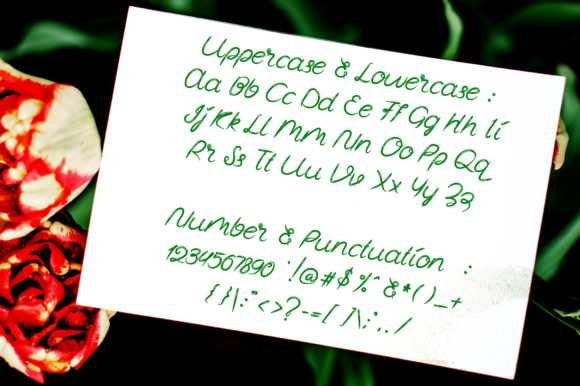 Uppercase & Lowercase :
Aa Bb Cc Dd Ee Ff Gg Hh Ii
Jj Kk Ll Mm Nn Oo Pp Qq
Rr Ss Tt Uu Vv Xx Yy Zz
Number & Punctuation :
1234567890 `!@#$%^&*()_+
{}|:"<>?-=[]\;',./